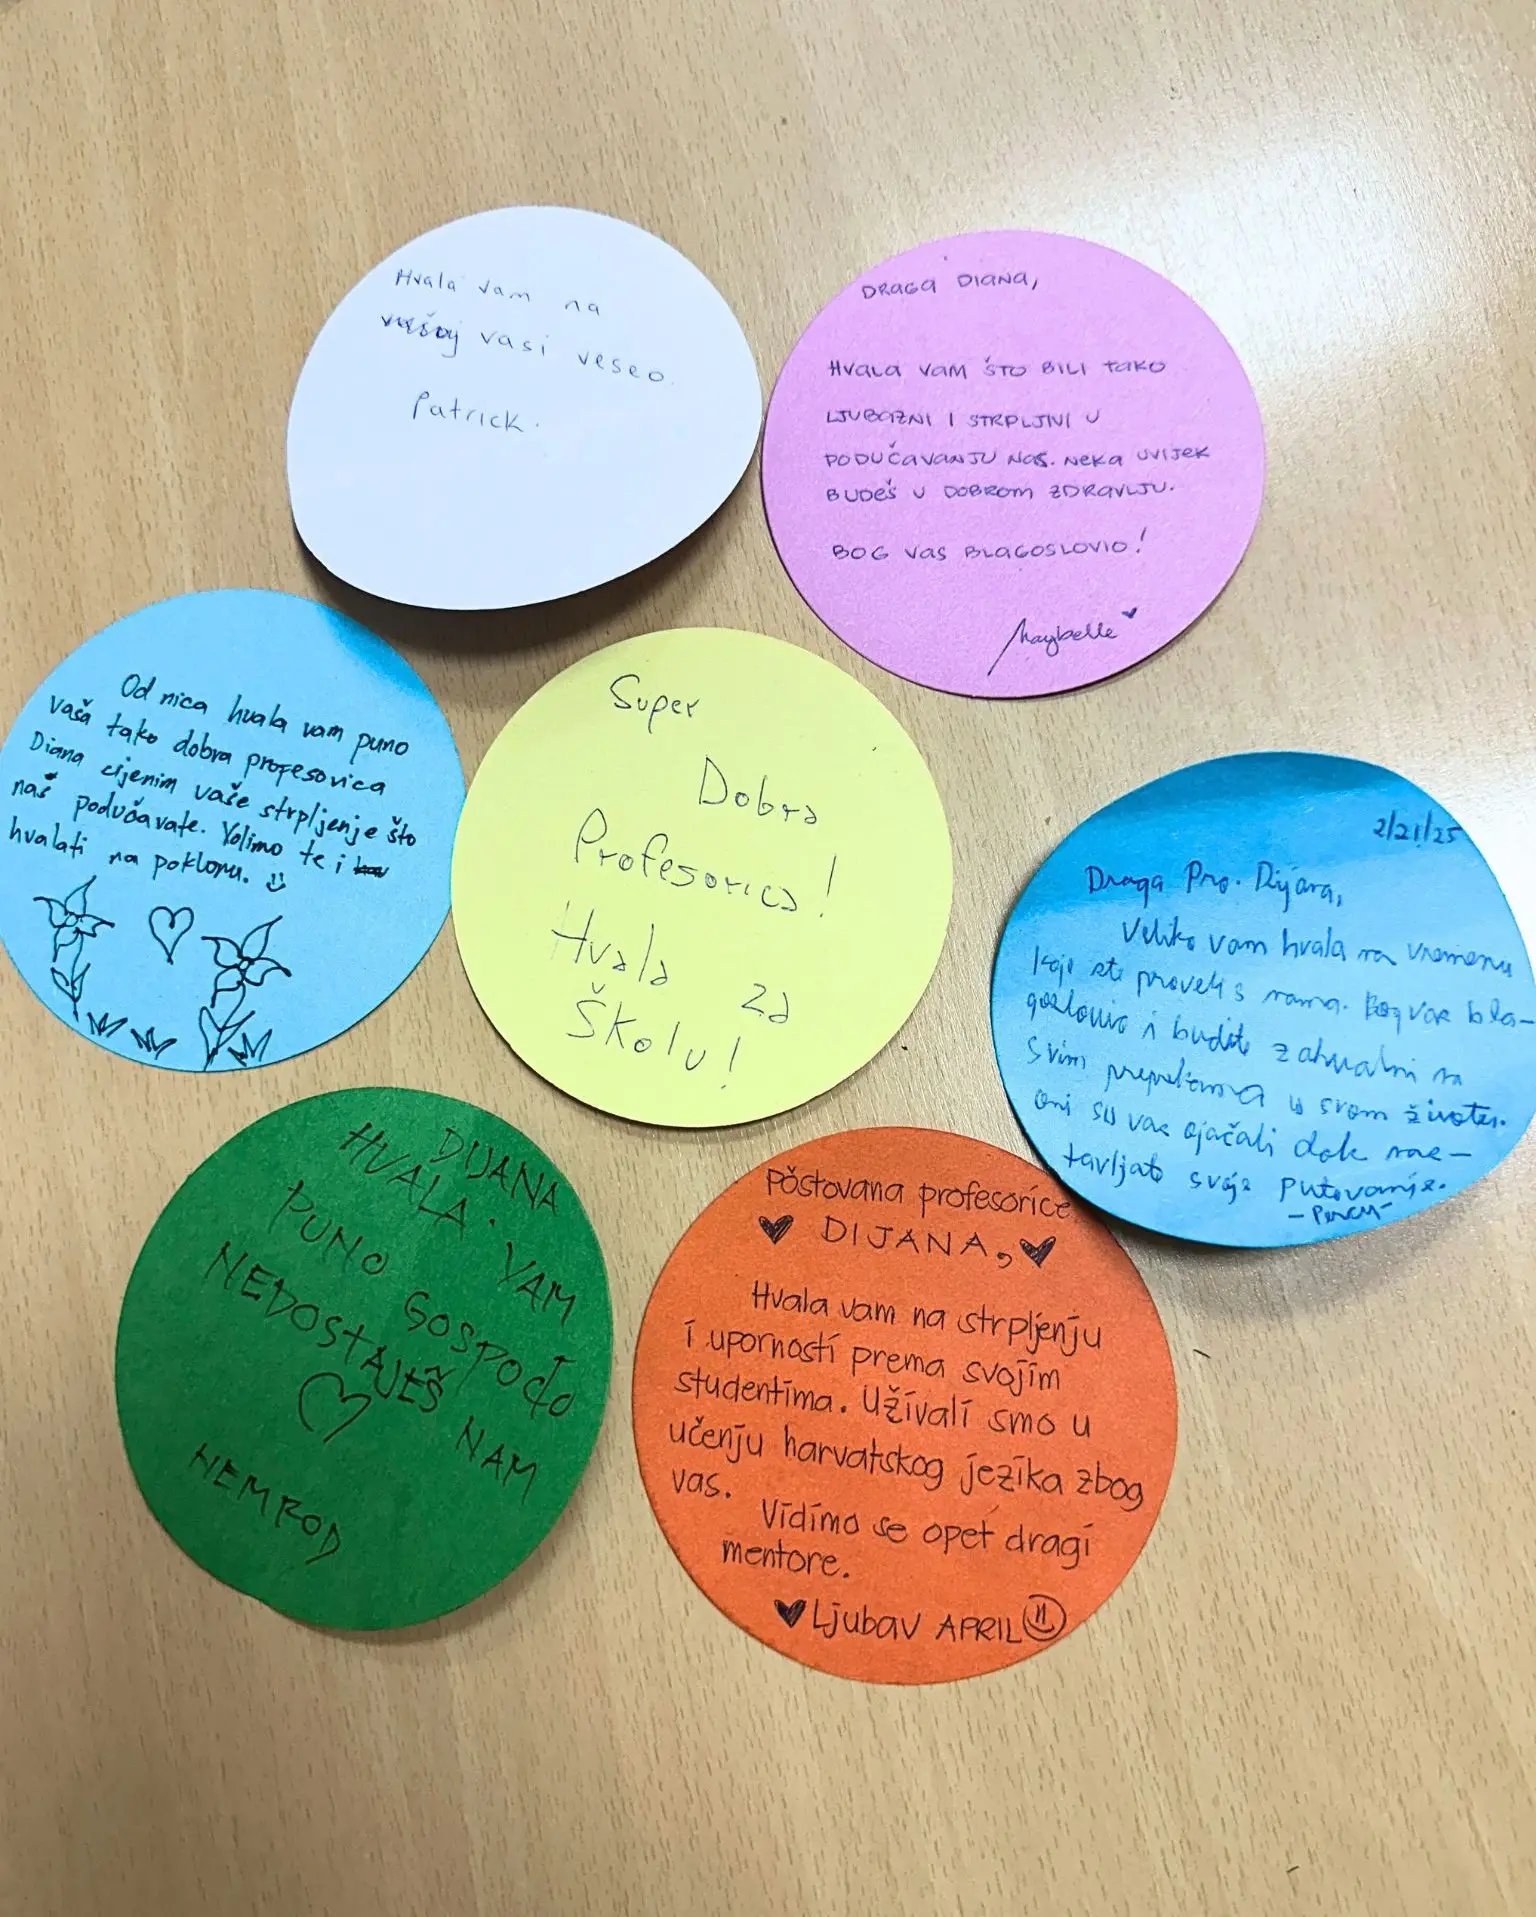 Hvala vam na
vasi veseo.
Patrick.
DRAGA DIANA,
HVALA VAM ŠTO BILI TAKO
LJUBAZNI I STRPLJIVI U
PODUČAVANJU NAS. NEKA UVIJEK
BUDEŠ U DOBROM ZDRAVLJU.
BOG VAS BLAGOSLOVIO!
Maybelle
Od nica hvala vam puno
vaša tako dobra profesorica
Diana cijenim vaše strpljenje što
naš podučavate. Volimo te i
hvalati na poklonu.
Super
Dobra
Profesorica!
Hvala za
Školu!
2/21/25
Draga Pro. Dijana,
Veliko vam hvala na vremenu
koje ste proveli s nama. Bog vas bla-
goslovio i budite zahvalni na
svim preprekama u svom životu.
oni su vas ojačali dok nas-
tavljate svoje putovanje.
- Percy-
DIJANA
HVALA. VAM
PUNO GOSPOĐO
NEDOSTAJEŠ NAM
NEMROD
Pŏstovana profesorice
DIJANA,
Hvala vam na strpljenju
i upornosti prema svojim
studentima. Uživali smo u
učenju harvatskog jezika zbog
vas.
Vidimo se opet dragi
mentore.
Ljubav APRIL